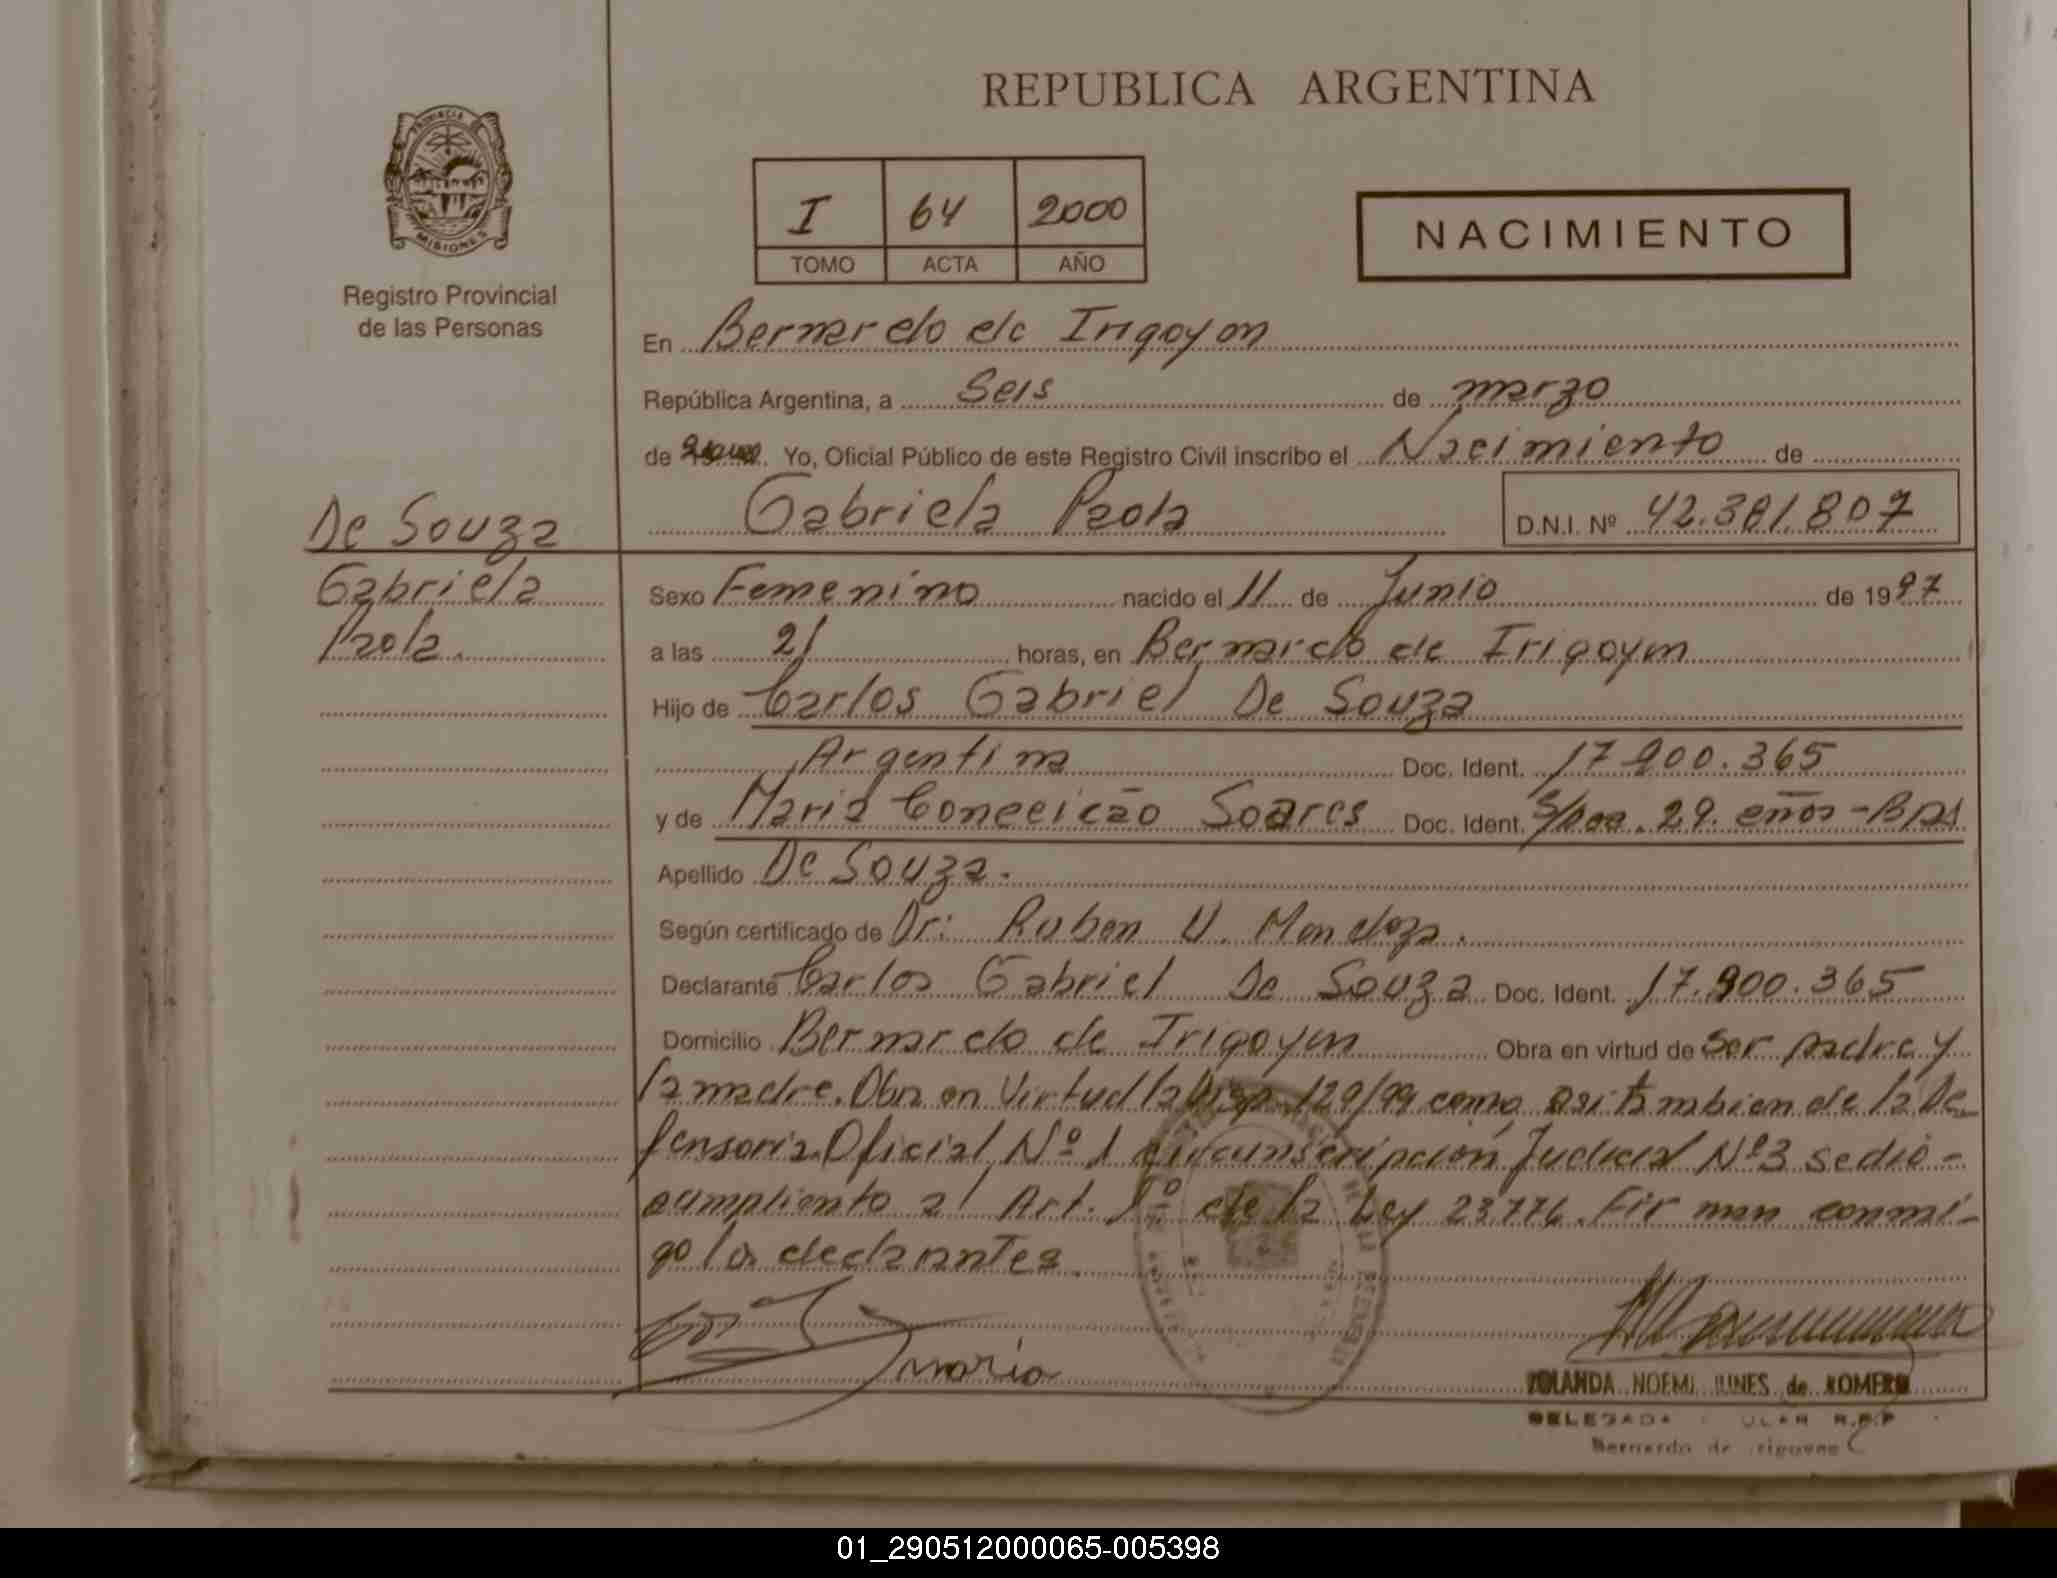 REPUBLICA ARGENTINA
PROVINCIA DE
MISIONES
Registro Provincial
de las Personas
I 64 2000
TOMO ACTA AÑO
NACIMIENTO
En Bernardo de Irigoyen
República Argentina, a Seis de marzo
de 2000. Yo, Oficial Público de este Registro Civil inscribo el Nacimiento de
Gabriela Paola D.N.I. Nº 42.381.807
De Souza
Gabriela
Paola.
Sexo Femenino nacido el 11 de Junio de 1997
a las 21 horas, en Bernardo de Irigoyen
Hijo de Carlos Gabriel De Souza
Argentina Doc. Ident. 17.900.365
y de Maria Conceicão Soares Doc. Ident. S/Doc. 29. años - Bras
Apellido De Souza.
Según certificado de Dr: Ruben U. Mendoza.
Declarante Carlos Gabriel De Souza Doc. Ident. 17.900.365
Domicilio Bernardo de Irigoyen Obra en virtud de ser padre y
la madre. Obra en Virtud la Disp. 129/99 como asi tambien de la De
fensoria Oficial Nº 1 circunscripción Judicial Nº 3 se dio -
cumpliento al Art. 1º de la Ley 23776. Firman conmi-
go los declarantes.
maria
YOLANDA NOEMI de ROMERO
DELEGADA R.P.P
Bernardo de Irigoyen
01_290512000065-005398